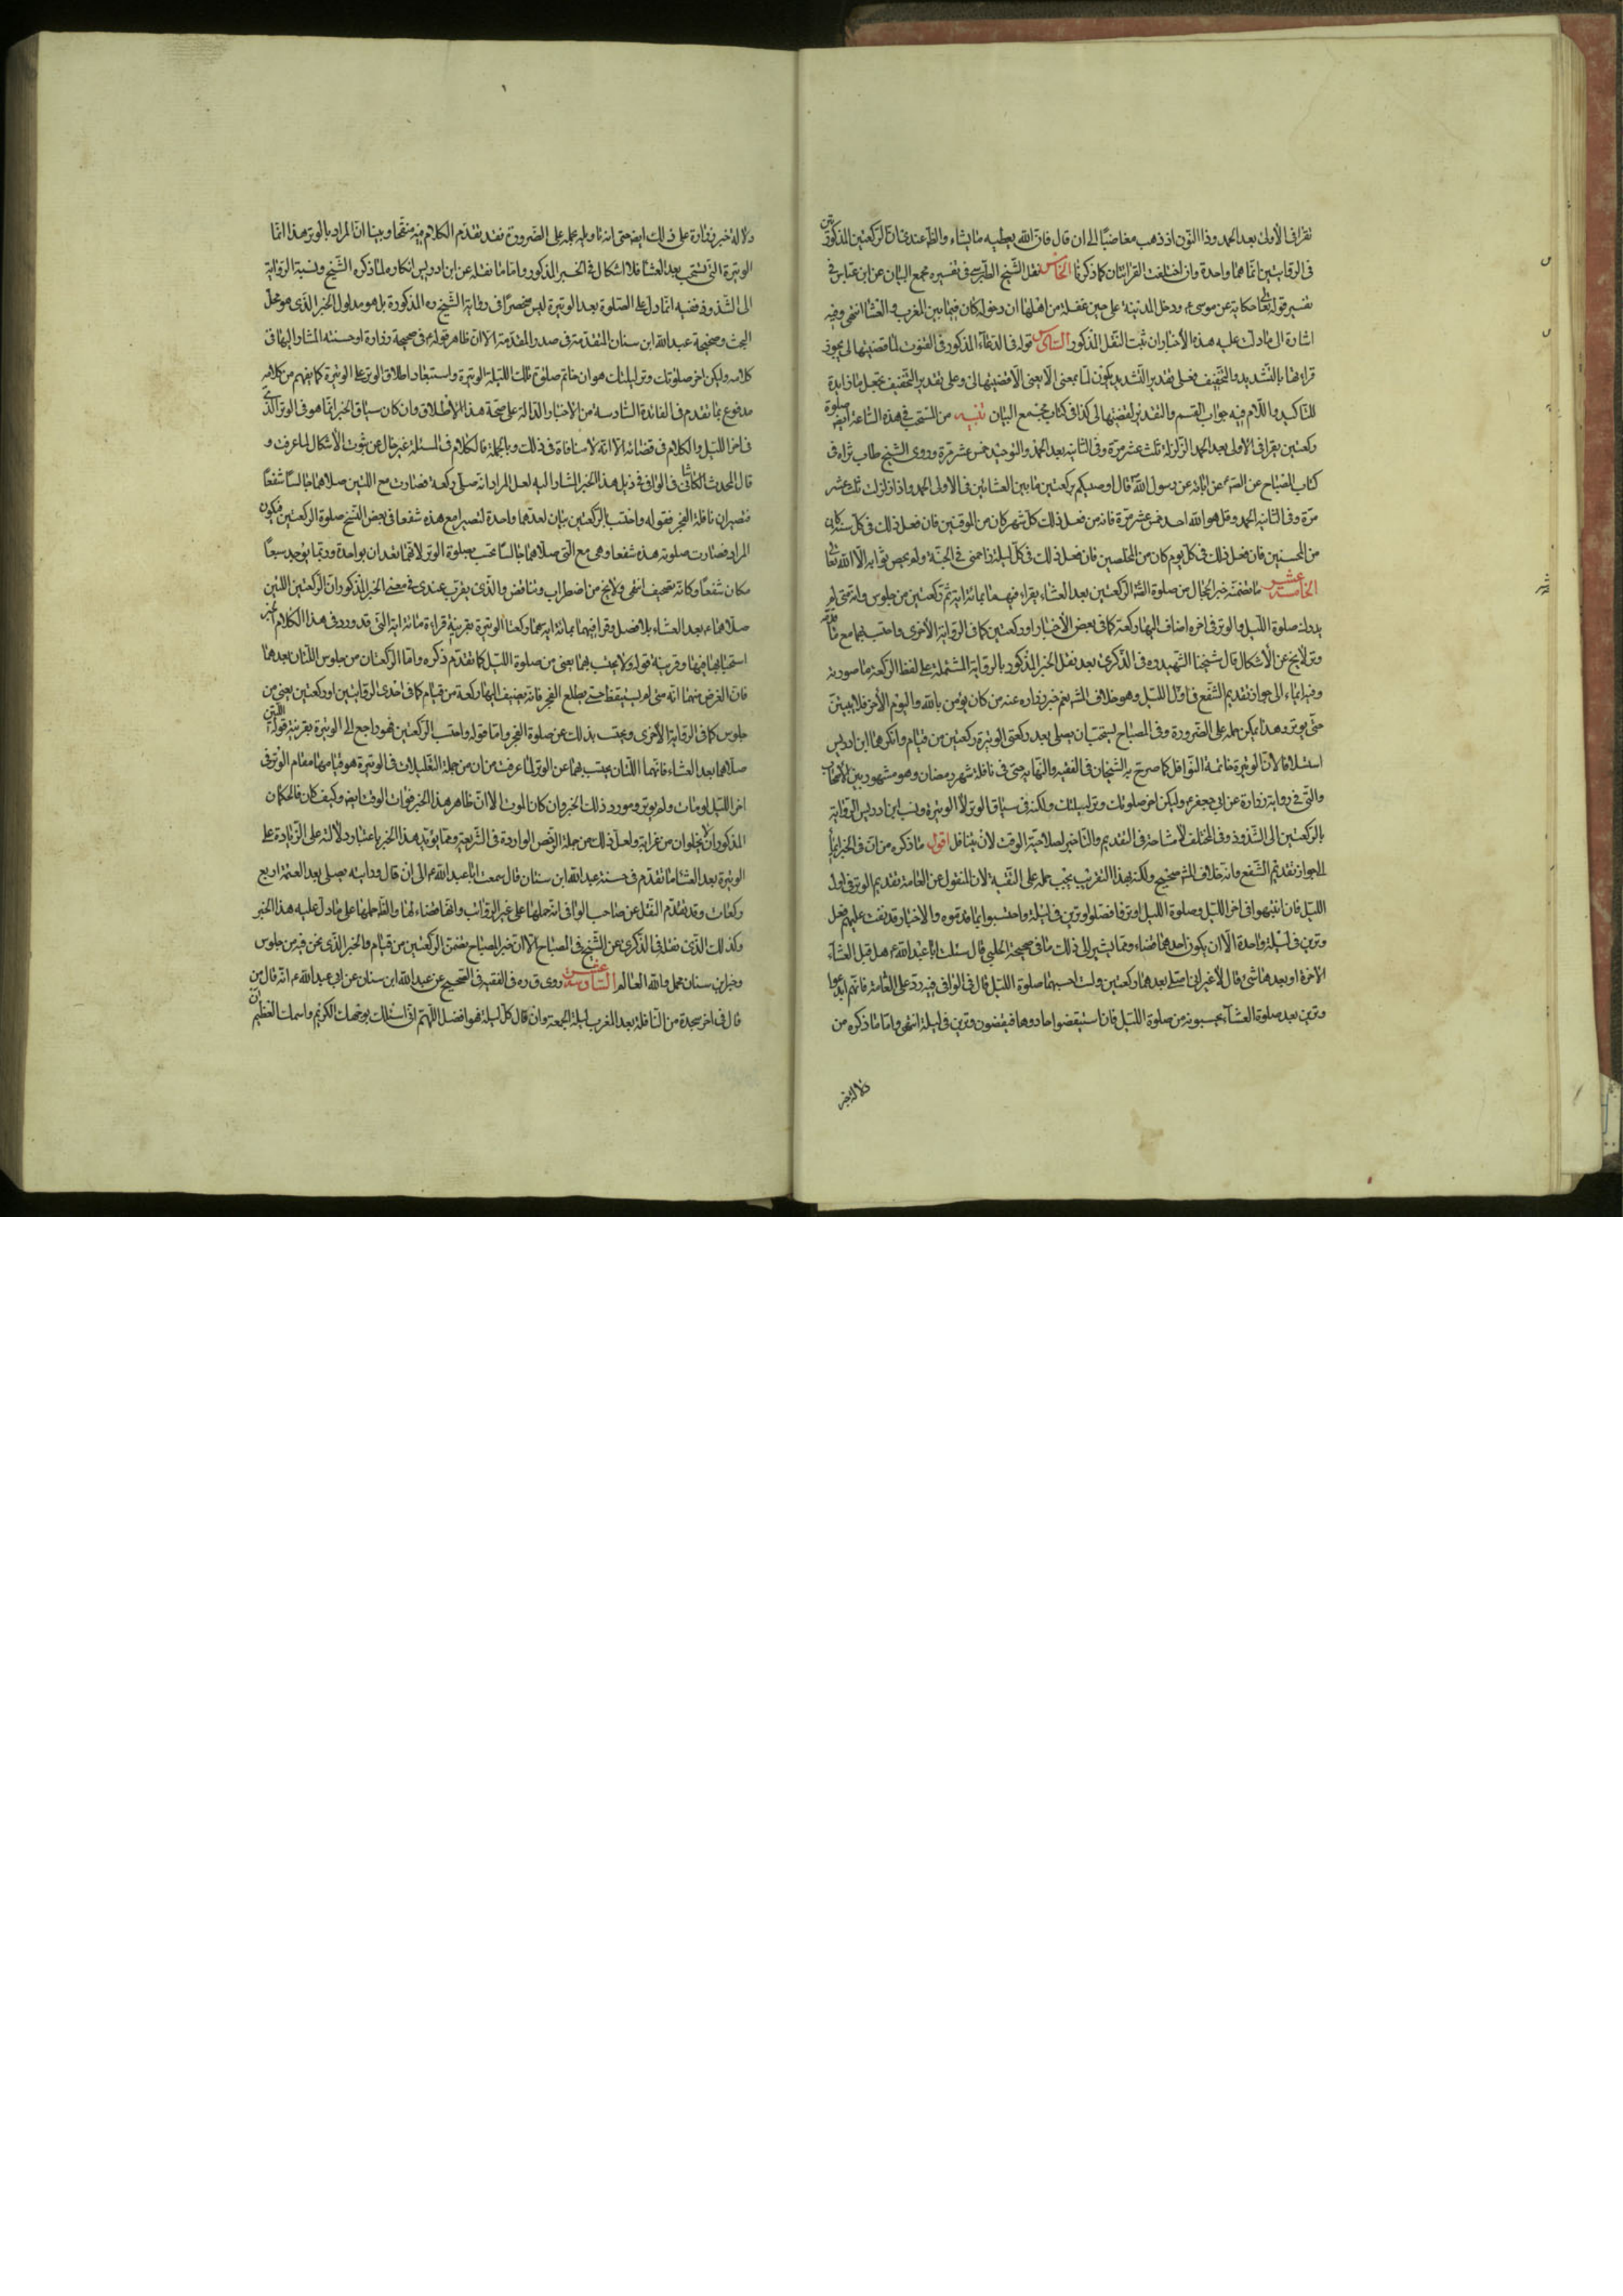 تقرا فى الاولى بعد الحمد وذا النون اذ ذهب مغاضبا الى ان قال فان الله يعطيه ما يشاء والظ عندى ان الركعتين المذكورتين
فى الروايتين انما هما واحدة وان اختلفت القراءتان كما ذكرنا الخامس نقل الشيخ الطبرسى فى تفسيره مجمع البيان عن ابن عباس فى
تفسير قوله تعا حكاية عن موسى ع ودخل المدينة على حين غفلة من اهلها ان دخوله كان فيما بين المغرب والعشا انتهى وفيه
اشارة الى ما دلت عليه هذه الأخبار ان ثبت النقل المذكور السادس قوله فى الدعاء المذكور فى القنوت لما قضيتها لى يجوز
قراءتها بالتشديد والتخفيف فعلى تقدير التشديد يكون لما بمعنى الا يعنى الا قضيتها لى وعلى تقدير التخفيف تجعل ما زايدة
للتاكيد واللام فيه جواب القسم والتقدير لقضيتها لى كذا فى كتاب مجمع البيان تنبيه من المستحب فى هذه الساعة ايض صلوة
ركعتين يقرا فى الاولى بعد الحمد الزلزلة ثلث عشر مرة وفى الثانية بعد الحمد والتوحيد خمس عشر مرة وروى الشيخ طاب ثراه فى
كتاب المصباح عن الص ع عن ابائه عن رسول الله قال اوصيكم بركعتين ما بين العشائين فى الاولى الحمد واذا زلزلت ثلث عشر
مرة وفى الثانية الحمد وقل هو الله احد خمس عشر مرة فانه من فعل ذلك كل شهر كان من الموقنين فان فعل ذلك فى كل سنة كان
من المحسنين فان فعل ذلك فى كل يوم كان من المخلصين فان فعل ذلك فى كل ليلة زاحمنى فى الجنة ولم يحص ثوابه الا الله تعا
الخامسة عشر ما تضمنه خبر الحجال من صلوة الركعتين بعد العشاء يقراء فيهما بمائة اية ثم ركعتين من جلوس وانه متى لم
يدرك صلوة الليل والوتر فى اخره اضاف اليها ركعة كما فى بعض الأخبار او ركعتين كما فى الرواية الأخرى واحتسب بهما مع ما
وتر لا يخ عن الأشكال قال شيخنا الشهيد ره فى الذكرى بعد نقل الخبر المذكور بالرواية المشتملة على لفظ الركعة ما صورته
وفيه ايماء الى جواز تقديم الشفع فى اول الليل وهو خلاف المشهور نعم خبر زرارة عنه من كان يؤمن بالله واليوم الأخر فلا يبيتن
حتى يوتر وهذا يمكن حمله على الضرورة وفى المصباح يستحب ان يصلى بعد ركعتى الوتيرة ركعتين من قيام وانكرها ابن ادريس
استسلافا لأن الوتيرة خاتمة النوافل كما صرح به الشيخان فى المقنعة والنهاية حتى فى نافلة شهر رمضان وهو مشهور بين الأصحاب
والتى فى رواية زرارة عن ابى جعفر ع وليكن اخر صلوتك وتر ليلتك ولكنه فى سياق الوتر لا الوتيرة ونسب ابن ادريس الرواية
بالركعتين الى الشذوذ وفى المختلف لا مشاحة فى التقديم والتاخير لصلاحية الوقت لأن يتنافل اقول ما ذكره من ان فى الخبر ايماء
الى جواز تقديم الشفع وانه خلاف المشهور صحيح ولكنه بهذا التقريب يجب حمله على التقية لأن المنقول عن العامة تقديم الوتر فى اول
الليل فان انتبهوا فى اخر الليل وصلوة الليل اوتروا فصلوا وترين فى ليلة واحتسبوا بما قدموه والاخبار قد نفت عليهم فعل
وترين فى ليلة واحدة الا ان يكون احدهما قضاء ومما يشير الى ذلك ما فى صحيحة الحلبى قال سئلت ابا عبد الله ع هل قبل العشاء
الاخرة او بعدها شئ قال لا غير انى اصلى بعدها ركعتين ولست احسبهما صلوة الليل قال فى الوافى فيه رد على العامة فانهم ابدعوا
وترين بعد صلوة العشاء يحسبونه من صلوة الليل فان استيقضوا اعادوها فيقضون وترين فى ليلة انتهى واما ما ذكره من
دلالة خبر
دلالة خبر زرارة على ذلك ايض حتى انه تاوله بحمله على الضرورة فقد تقدم الكلام فيه منقحا وبينا ان المراد بالوتر هذا انما
الوتيرة التى تستحب بعد العشا فلا اشكال فى الخبر المذكور واما ما نقله عن ابن ادريس انكاره لما ذكره الشيخ ونسبة الرواية
الى الشذوذ ففيه انما دل على الصلوة بعد الوتيرة ليس منحصرا فى رواية الشيخ ره المذكورة بل هو مدلول الخبر الذى هو محل
البحث وصحيحة عبد الله ابن سنان المتقدمة فى صدر المقدمة الا ان ظاهر قوله ع فى صحيحة زرارة او حسنته المشار اليها فى
كلامه وليكن اخر صلوتك وتر ليلتك هو ان خاتم صلوتك تلك الليلة الوتيرة واستبعاد اطلاق الوتر على الوتيرة كما يفهم من كلامه
مدفوع بما تقدم فى الفائدة السادسة من الأخبار الدالة على صحة هذا الأطلاق وان كان سياق الخبر انما هو فى الوتر الذى
فى اخر الليل والكلام فى قضائه الا انه لا منافاة فى ذلك وبالجملة فالكلام فى المسئلة غير خال عن شوب الأشكال لما عرفت و
قال المحدث الكاشانى فى الوافى فى ذيل هذا الخبر المشار اليه لعل المراد انه صلى ركعة فصارت مع اللتين صلاهما جالسا شفعا
فتصير ان نافلة الفجر فقوله واحتسب بالركعتين بيان لعدهما واحدة لتصير مع هذه شفعا فى بعض النسخ صلوة الركعتين فيكون
المراد فصارت صلوته هذه شفعا وهى مع التى صلاهما جالسا تحتسب بصلوة الوتر لانهما تعدان بواحدة وربما يوجد سبعا
مكان شفعا وكانه تصحيف انتهى ولا يخ من اضطراب وتناقض والذى يقرب عندى فى معنى الخبر المذكور ان الركعتين اللتين
صلاهما ع بعد العشاء بلا فصل وقرا فيهما بمائة اية هما ركعتا الوتيرة بقرينة قراءة مائة اية التى قد ورد فى هذا الكلام خبر
استحبابها فيها وقرينة قوله ولا يحتسب بهما يعنى من صلوة الليل كما تقدم ذكره واما الركعتان من جلوس اللتان بعدهما
فان الغرض منهما انه متى لم يستيقظ حتى يطلع الفجر فانه يضيف اليها ركعة من قيام كما فى احدى الروايتين او ركعتين يعنى من
جلوس كما فى الرواية الأخرى ويحتسب بذلك عن صلوة الفجر واما قوله واحتسب الركعتين فهو راجع الى الوتيرة بقرينة قوله اللتين
صلاهما بعد العشاء فانهما اللتان يحتسب بهما عن الوتر لما عرفت من ان من جملة التعليلات فى الوتيرة هو قيامها مقام الوتر فى
اخر الليل لو مات ولم يوتر ومورد ذلك الخبر وان كان الموت الا ان ظاهر هذا الخبر فوات الوقت ايض وكيف كان فالحكمان
المذكوران لا يخلوان من غرابة ولعل ذلك من جملة الرخص الواردة فى الشريعة ومما يؤيد هذا الخبر باعتبار دلالته على الزيادة على
الوتيرة بعد العشا ما تقدم فى حسنة عبد الله ابن سنان قال سمعت ابا عبد الله ع الى ان قال ورايته يصلى بعد العتمة اربع
ركعات وقد تقدم النقل عن صاحب الوافى انه حملها على غير الرواتب وانها قضاء لها والظ حملها على ما دل عليه هذا الخبر
وكذلك الذى نقله فى الذكرى عن الشيخ فى المصباح الا ان خبر المصباح تضمن الركعتين من قيام والخبر الذى نحن فيه من جلوس
وخبر ابن سنان مجمل والله العالم السادسة عشر روى ق ره فى الفقيه فى الصحيح عن عبد الله ابن سنان عن ابى عبد الله ع انه قال من
قال فى اخر سجدة من النافلة بعد المغرب ليلة الجمعة وان قال كل ليلة فهو افضل اللهم انى اسئلك بوجهك الكريم واسمك العظيم ان